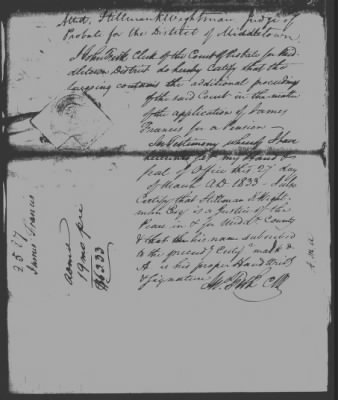 Attest, Stillman K Wightman Judge of
Probate for the District of Middletown
I John Fisk Clerk of the Court of Probate for Mid
dletown District do hereby Certify that the
foregoing contains the additional proceedings
of the said Court in the matter
of the application of James
Francis for a Pension
In Testimony whereof I have
hereunto set my Hand &
seal of Office this 27 day
of March A.D. 1833 - I also
Certify that Stillman K Wight-
man Esq is a Justice of the
Peace in & for Midd. County
& that his name subscribed
to the preceed Certif mark'd
A is his proper Hand Writg
& Signature
Jno. Fisk Clk
James Francis
19 mo pri